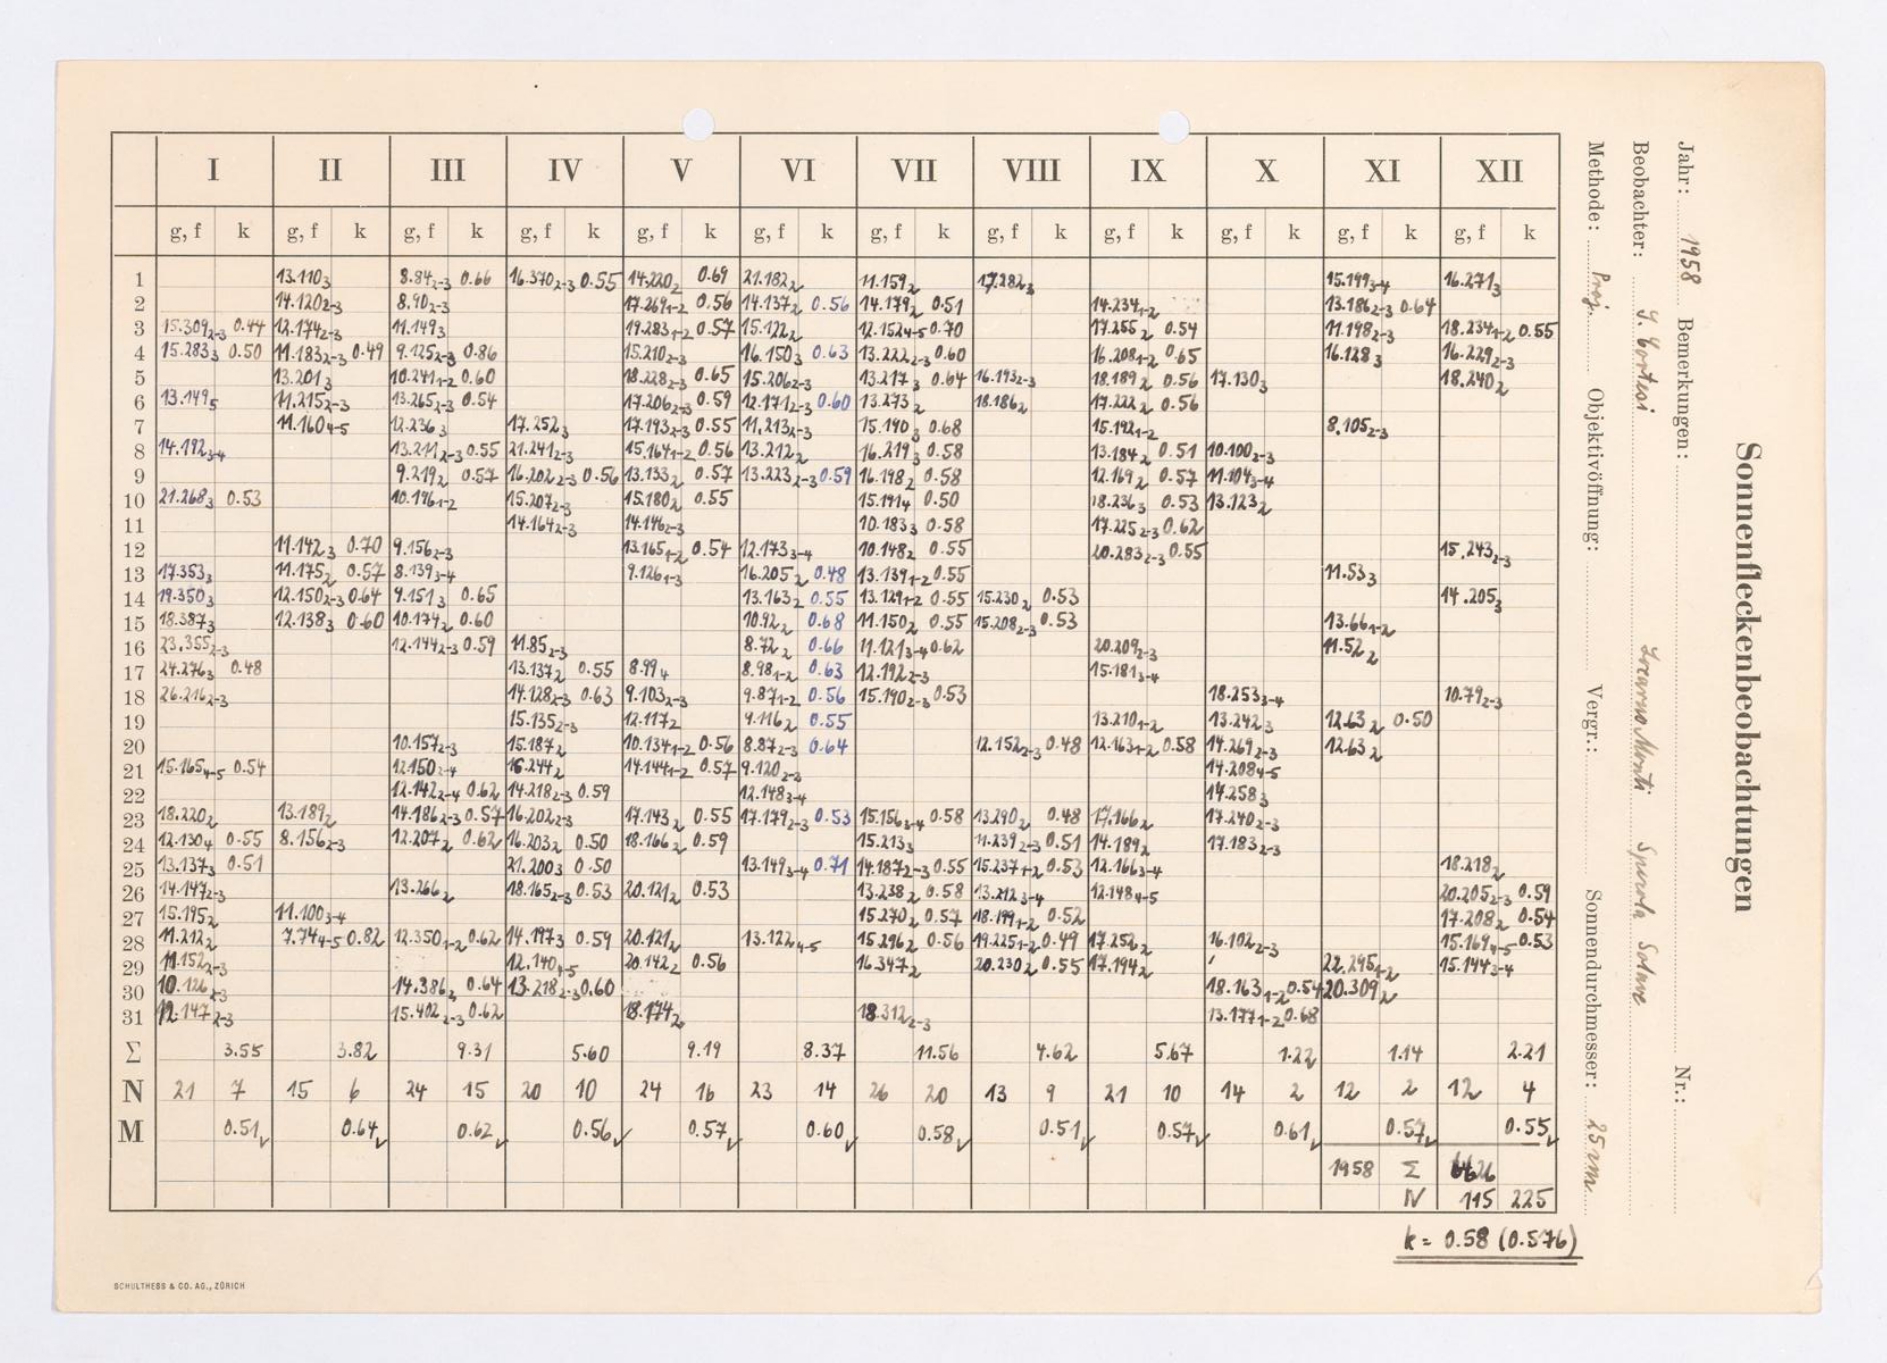 Sonnenfleckenbeobachtungen
Jahr: 1958 Bemerkungen: Nr.:
Beobachter: S. Cortesi Locarno Monti Specola Solare
Methode: Proj. Objektivöffnung: Vergr.: Sonnendurchmesser: 25 cm
I II III IV V VI VII VIII IX X XI XII
g, f k g, f k g, f k g, f k g, f k g, f k g, f k g, f k g, f k g, f k g, f k g, f k
1 13.110₃ 8.84₂₋₃ 0.66 16.370₂₋₃ 0.55 14.220₂ 0.69 21.182₂ 11.159₂ 17.282₃ 15.199₃₋₄ 16.271₃
2 14.120₂₋₃ 8.90₂₋₃ 17.269₁₋₂ 0.56 14.137₂ 0.56 14.179₂ 0.51 14.234₁₋₂ 13.186₂₋₃ 0.64
3 15.309₂₋₃ 0.44 12.174₂₋₃ 11.149₃ 19.283₁₋₂ 0.57 15.122₂ 12.152₄₋₅ 0.70 17.255₂ 0.54 11.198₂₋₃ 18.234₁₋₂ 0.55
4 15.283₃ 0.50 11.183₂₋₃ 0.49 9.125₂₋₃ 0.86 15.210₂₋₃ 16.150₃ 0.63 13.222₂₋₃ 0.60 16.208₁₋₂ 0.65 16.128₃ 16.229₂₋₃
5 13.201₃ 10.241₁₋₂ 0.60 18.228₂₋₃ 0.65 15.206₂₋₃ 13.217₃ 0.64 16.193₂₋₃ 18.189₂ 0.56 17.130₃ 18.240₂
6 13.149₅ 11.215₂₋₃ 13.265₂₋₃ 0.54 17.206₂₋₃ 0.59 12.171₂₋₃ 0.60 13.273₂ 18.186₂ 17.222₂ 0.56
7 11.160₄₋₅ 12.236₃ 17.252₃ 17.193₂₋₃ 0.55 11.213₂₋₃ 15.190₃ 0.68 15.192₁₋₂ 8.105₂₋₃
8 14.192₃₋₄ 13.211₂₋₃ 0.55 21.241₂₋₃ 15.164₁₋₂ 0.56 13.212₂ 16.219₃ 0.58 13.184₂ 0.51 10.100₂₋₃
9 9.219₂ 0.57 16.202₂₋₃ 0.56 13.133₂ 0.57 13.223₂₋₃ 0.59 16.198₂ 0.58 12.169₂ 0.57 11.104₃₋₄
10 21.268₃ 0.53 10.196₁₋₂ 15.207₂₋₃ 15.180₂ 0.55 15.191₄ 0.50 18.236₃ 0.53 13.123₂
11 14.164₂₋₃ 14.146₂₋₃ 10.183₃ 0.58 17.225₂₋₃ 0.62
12 11.142₃ 0.70 9.156₂₋₃ 13.165₁₋₂ 0.54 12.173₃₋₄ 10.148₂ 0.55 20.283₂₋₃ 0.55 15.243₂₋₃
13 17.353₃ 11.175₂ 0.57 8.139₃₋₄ 9.126₁₋₃ 16.205₂ 0.48 13.139₁₋₂ 0.55 11.53₃
14 19.350₃ 12.150₂₋₃ 0.64 9.151₃ 0.65 13.163₂ 0.55 13.129₁₋₂ 0.55 15.230₂ 0.53 14.205₃
15 18.387₃ 12.138₃ 0.60 10.174₂ 0.60 10.92₂ 0.68 11.150₂ 0.55 15.208₂₋₃ 0.53 13.66₁₋₂
16 23.355₂₋₃ 12.144₂₋₃ 0.59 11.85₂₋₃ 8.72₂ 0.66 11.121₃₋₄ 0.62 20.209₂₋₃ 11.52₂
17 24.276₃ 0.48 13.137₂ 0.55 8.99₄ 8.98₁₋₂ 0.63 12.192₂₋₃ 15.181₃₋₄
18 26.216₂₋₃ 14.128₂₋₃ 0.63 9.103₂₋₃ 9.87₁₋₂ 0.56 15.190₂₋₃ 0.53 18.253₃₋₄ 10.79₂₋₃
19 15.135₂₋₃ 12.117₂ 9.116₂ 0.55 13.210₁₋₂ 13.242₃ 12.63₂ 0.50
20 10.157₂₋₃ 15.187₂ 10.134₁₋₂ 0.56 8.87₂₋₃ 0.64 12.152₂₋₃ 0.48 12.163₁₋₂ 0.58 14.269₂₋₃ 12.63₂
21 15.165₄₋₅ 0.54 12.150₂₋₄ 16.244₂ 14.144₁₋₂ 0.57 9.120₂₋₃ 14.208₄₋₅
22 12.142₂₋₄ 0.62 14.218₂₋₃ 0.59 12.148₃₋₄ 14.258₃
23 18.220₂ 13.189₂ 14.186₂₋₃ 0.57 16.202₂₋₃ 17.143₂ 0.55 17.179₂₋₃ 0.53 15.156₃₋₄ 0.58 13.290₂ 0.48 17.166₂ 17.240₂₋₃
24 12.130₄ 0.55 8.156₂₋₃ 12.207₂ 0.62 16.203₂ 0.50 18.166₂ 0.59 15.213₃ 11.239₂₋₃ 0.51 14.189₂ 17.183₂₋₃
25 13.137₃ 0.51 21.200₃ 0.50 13.149₃₋₄ 0.71 14.187₂₋₃ 0.55 15.237₁₋₂ 0.53 12.166₃₋₄ 18.218₂
26 14.147₂₋₃ 13.266₂ 18.165₂₋₃ 0.53 20.121₂ 0.53 13.238₂ 0.58 13.212₃₋₄ 12.148₄₋₅ 20.205₂₋₃ 0.59
27 15.195₂ 11.100₃₋₄ 15.270₂ 0.57 18.199₁₋₂ 0.52 17.208₂ 0.54
28 11.212₂ 7.74₄₋₅ 0.82 12.350₁₋₂ 0.62 14.197₃ 0.59 20.121₂ 13.122₄₋₅ 15.296₂ 0.56 19.225₁₋₂ 0.49 17.252₂ 16.102₂₋₃ 15.169₄₋₅ 0.53
29 11.152₂₋₃ 12.140₄₋₅ 20.142₂ 0.56 16.347₂ 20.230₂ 0.55 17.194₂ 22.295₁₋₂ 15.144₃₋₄
30 10.126₂₋₃ 14.386₂ 0.64 13.218₂₋₃ 0.60 18.163₁₋₂ 0.54 20.309₂
31 12.147₂₋₃ 15.402₂₋₃ 0.62 18.174₂ 18.312₂₋₃ 13.177₁₋₂ 0.68
Σ 3.55 3.82 9.31 5.60 9.19 8.37 11.56 4.62 5.67 1.22 1.14 2.21
N 21 7 15 6 24 15 20 10 24 16 23 14 26 20 13 9 21 10 14 2 12 2 12 4
M 0.51 0.64 0.62 0.56 0.57 0.60 0.58 0.51 0.57 0.61 0.57 0.55
1958 Σ 6626
N 115 225
k = 0.58 (0.576)
SCHULTHESS & CO. AG., ZÜRICH